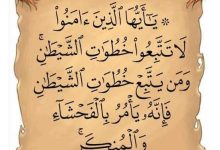 ۞ يَـٰٓأَيُّهَا ٱلَّذِينَ ءَامَنُوا۟
لَا تَتَّبِعُوا۟ خُطُوَٰتِ ٱلشَّيْطَـٰنِ ۚ
وَمَن يَتَّبِعْ خُطُوَٰتِ ٱلشَّيْطَـٰنِ
فَإِنَّهُۥ يَأْمُرُ بِٱلْفَحْشَآءِ
وَٱلْمُنكَرِ ۚ